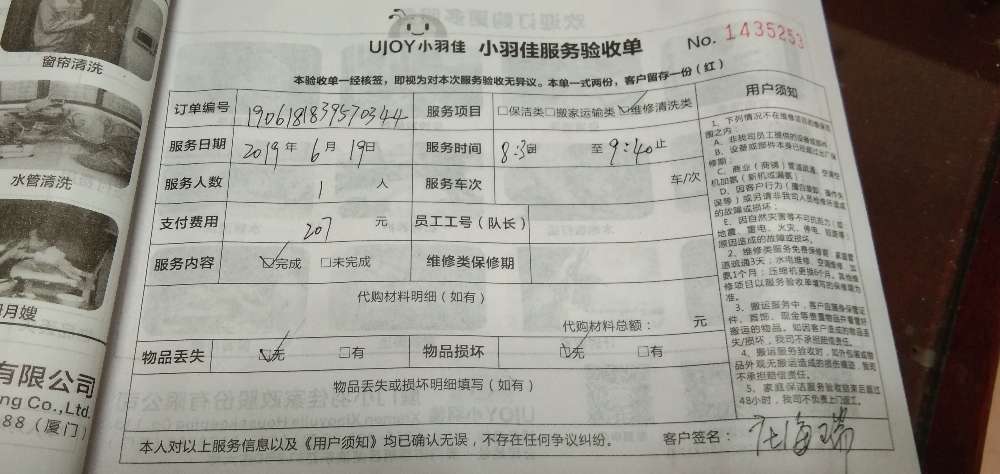 窗帘清洗
水管清洗
月嫂
有限公司
ng Co.,Ltd.
88（厦门）
UJOY小羽佳 小羽佳服务验收单 No. 1435253
本验收单一经核签，即视为对本次服务验收无异议。本单一式两份，客户留存一份（红）
订单编号 服务项目 □保洁类□搬家运输类☑维修清洗类
服务日期 2019年 6月 19日 服务时间 8:30 至 9:40止
服务人数 1 人 服务车次 车/次
支付费用 207 元 员工工号（队长）
服务内容 ☑完成 □未完成 维修类保修期
代购材料明细（如有）
代购材料总额： 元
物品丢失 ☑无 □有 物品损坏 ☑无 □有
物品丢失或损坏明细填写（如有）
本人对以上服务信息以及《用户须知》均已确认无误，不存在任何争议纠纷。 客户签名：
用户须知
1、下列情况不在维修项目的保修范
围之内：
A、非我司员工提供的设备或部件
B、设备或部件本身已经超过出厂保
修期；
C、商业（商铺）管道疏通、空调挂
机加氨（新机或漏氨）
D、因客户行为（擅自装卸、操作失
误等）或另请非我司人员检修环造成
的故障或损坏；
E、因自然灾害等不可抗力（如
地震、雷电、火灾、停电、短路等）
原因造成的故障或损坏。
2、维修类服务免费保修期：家庭管
道疏通3天；水电维修、空调维修、加
氨1个月；压缩机更换6个月。其他维
修项目以服务验收单填写的保修期为
准。
3、搬运服务中，客户应随身保管证
件、首饰、现金等贵重物品并看管好
搬运的物品。如因客户造成的物品丢
失/损坏，我司不承担赔偿责任。
4、搬运服务验收时，如外包装或物
品外观无搬运造成的损伤痕迹，我司
不承担赔偿责任。
5、家庭保洁服务验收结束后超过
48小时，我司不负责上门返工。